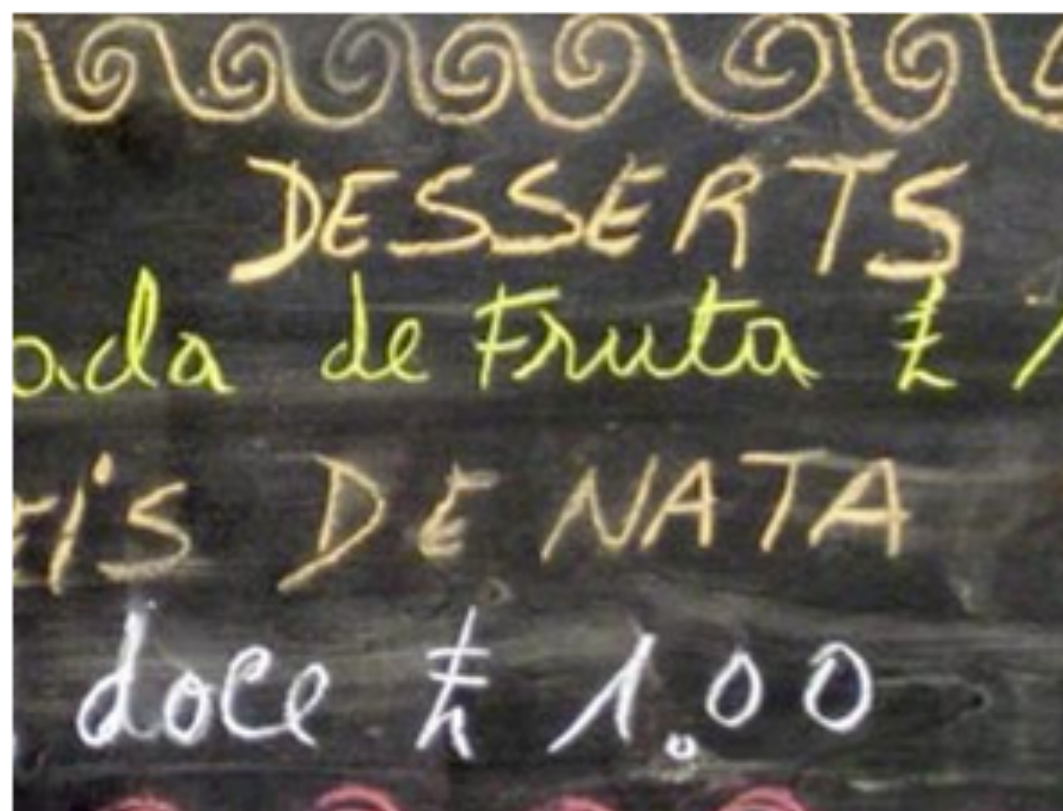 DESSERTS
ada de Fruta £
eis DE NATA
doce £ 1.00